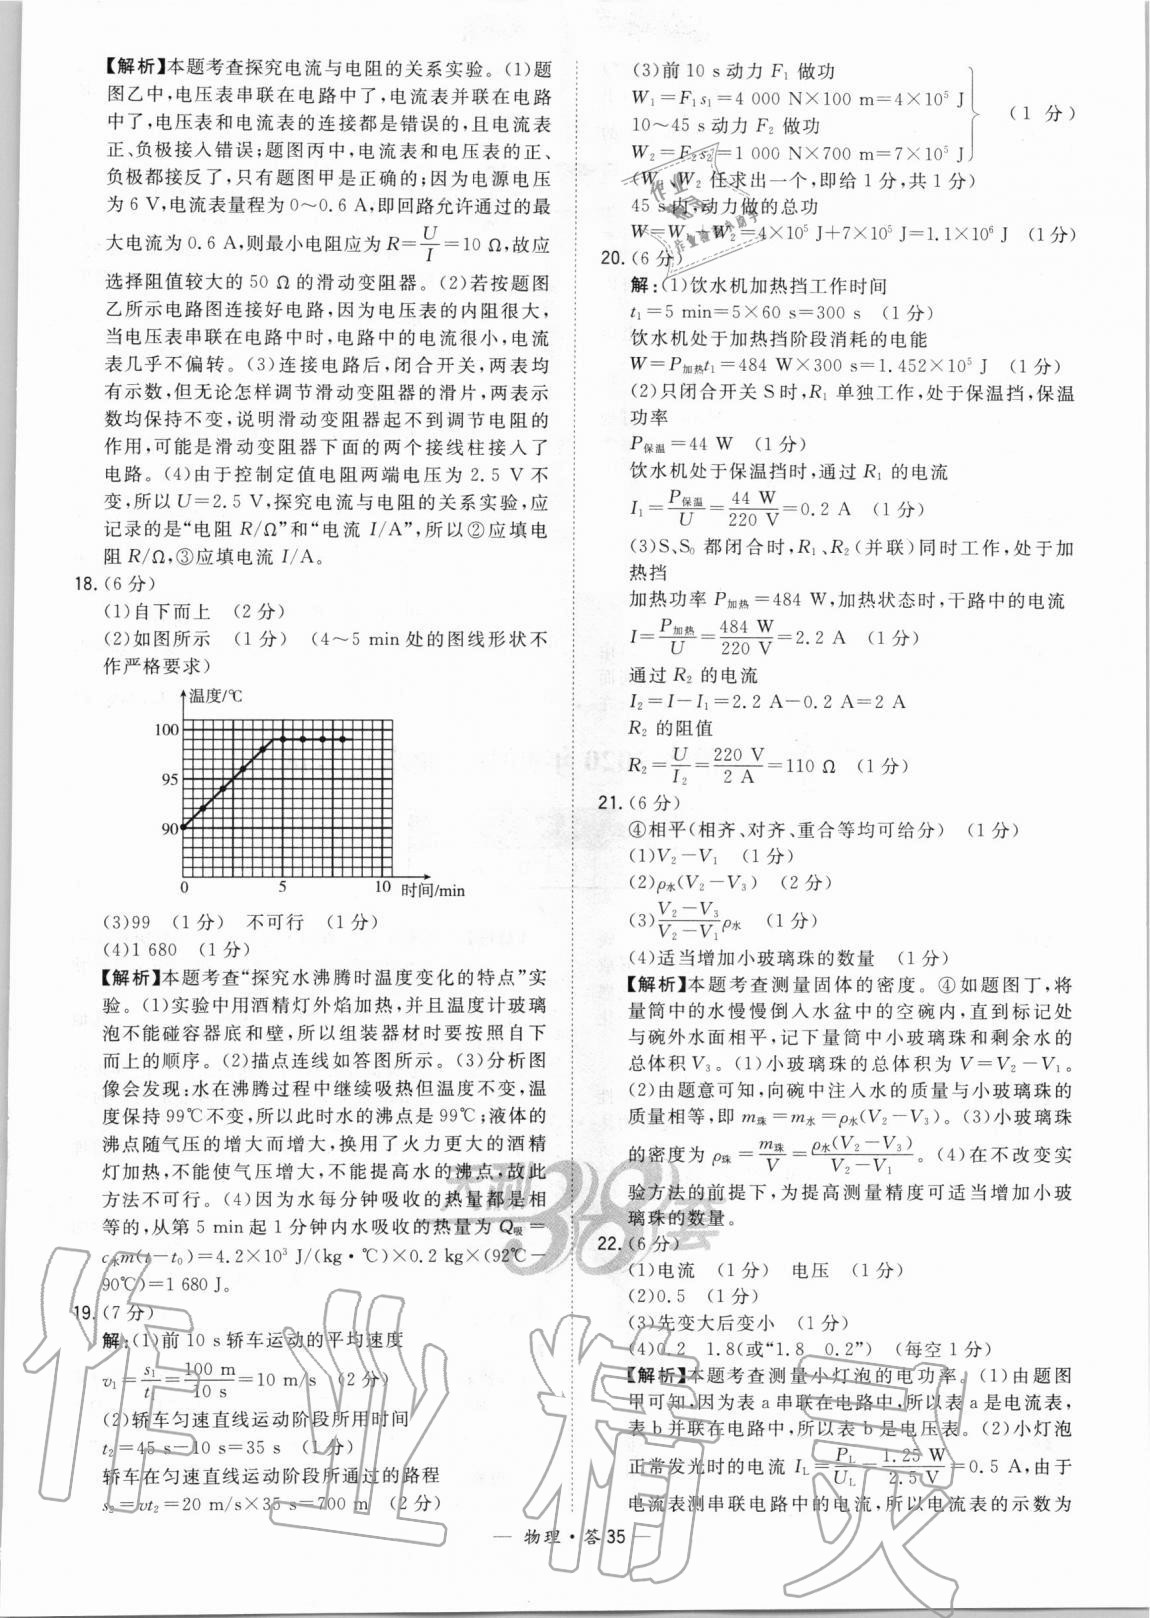 【解析】本题考查探究电流与电阻的关系实验。(1)题
图乙中,电压表串联在电路中了,电流表并联在电路
中了,电压表和电流表的连接都是错误的,且电流表
正、负极接入错误;题图丙中,电流表和电压表的正、
负极都接反了,只有题图甲是正确的;因为电源电压
为6 V,电流表量程为0~0.6 A,即回路允许通过的最
大电流为0.6 A,则最小电阻应为R=U/I=10 Ω,故应
选择阻值较大的50 Ω的滑动变阻器。(2)若按题图
乙所示电路图连接好电路,因为电压表的内阻很大,
当电压表串联在电路中时,电路中的电流很小,电流
表几乎不偏转。(3)连接电路后,闭合开关,两表均
有示数,但无论怎样调节滑动变阻器的滑片,两表示
数均保持不变,说明滑动变阻器起不到调节电阻的
作用,可能是滑动变阻器下面的两个接线柱接入了
电路。(4)由于控制定值电阻两端电压为2.5 V不
变,所以U=2.5 V,探究电流与电阻的关系实验,应
记录的是“电阻R/Ω”和“电流I/A”,所以②应填电
阻R/Ω,③应填电流I/A。
18.(6分)
(1)自下而上 (2分)
(2)如图所示 (1分) (4~5 min处的图线形状不
作严格要求)
温度/℃
100
95
90
0 5 10 时间/min
(3)99 (1分) 不可行 (1分)
(4)1 680 (1分)
【解析】本题考查“探究水沸腾时温度变化的特点”实
验。(1)实验中用酒精灯外焰加热,并且温度计玻璃
泡不能碰容器底和壁,所以组装器材时要按照自下
而上的顺序。(2)描点连线如答图所示。(3)分析图
像会发现:水在沸腾过程中继续吸热但温度不变,温
度保持99℃不变,所以此时水的沸点是99℃;液体的
沸点随气压的增大而增大,换用了火力更大的酒精
灯加热,不能使气压增大,不能提高水的沸点,故此
方法不可行。(4)因为水每分钟吸收的热量都是相
等的,从第5 min起1分钟内水吸收的热量为Q吸=
c水m(t-t₀)=4.2×10³ J/(kg·℃)×0.2 kg×(92℃-
90℃)=1 680 J。
19.(7分)
解:(1)前10 s轿车运动的平均速度
v₁=s₁/t=100 m/10 s=10 m/s (2分)
(2)轿车匀速直线运动阶段所用时间
t₂=45 s-10 s=35 s (1分)
轿车在匀速直线运动阶段所通过的路程
s₂=vt₂=20 m/s×35 s=700 m (2分)
(3)前10 s动力F₁做功
W₁=F₁s₁=4 000 N×100 m=4×10⁵ J
10~45 s动力F₂做功
(1分)
W₂=F₂s₂=1 000 N×700 m=7×10⁵ J
(W₁、W₂任求出一个,即给1分,共1分)
45 s内,动力做的总功
W=W₁+W₂=4×10⁵ J+7×10⁵ J=1.1×10⁶ J (1分)
20.(6分)
解:(1)饮水机加热挡工作时间
t₁=5 min=5×60 s=300 s (1分)
饮水机处于加热挡阶段消耗的电能
W=P加热t₁=484 W×300 s=1.452×10⁵ J (1分)
(2)只闭合开关S时,R₁单独工作,处于保温挡,保温
功率
P保温=44 W (1分)
饮水机处于保温挡时,通过R₁的电流
I₁=P保温/U=44 W/220 V=0.2 A (1分)
(3)S、S₀都闭合时,R₁、R₂(并联)同时工作,处于加
热挡
加热功率P加热=484 W,加热状态时,干路中的电流
I=P加热/U=484 W/220 V=2.2 A (1分)
通过R₂的电流
I₂=I-I₁=2.2 A-0.2 A=2 A
R₂的阻值
R₂=U/I₂=220 V/2 A=110 Ω (1分)
21.(6分)
④相平(相齐、对齐、重合等均可给分) (1分)
(1)V₂-V₁ (1分)
(2)ρ水(V₂-V₃) (2分)
(3)(V₂-V₃)/(V₂-V₁)ρ水 (1分)
(4)适当增加小玻璃珠的数量 (1分)
【解析】本题考查测量固体的密度。④如题图丁,将
量筒中的水慢慢倒入水盆中的空碗内,直到标记处
与碗外水面相平,记下量筒中小玻璃珠和剩余水的
总体积V₃。(1)小玻璃珠的总体积为V=V₂-V₁。
(2)由题意可知,向碗中注入水的质量与小玻璃珠的
质量相等,即m珠=m水=ρ水(V₂-V₃)。(3)小玻璃珠
的密度为ρ珠=m珠/V=ρ水(V₂-V₃)/(V₂-V₁)。(4)在不改变实
验方法的前提下,为提高测量精度可适当增加小玻
璃珠的数量。
22.(6分)
(1)电流 (1分) 电压 (1分)
(2)0.5 (1分)
(3)先变大后变小 (1分)
(4)0.2 1.8(或“1.8 0.2”) (每空1分)
【解析】本题考查测量小灯泡的电功率。(1)由题图
甲可知,因为表a串联在电路中,所以表a是电流表,
表b并联在电路中,所以表b是电压表。(2)小灯泡
正常发光时的电流I_L=P_L/U_L=1.25 W/2.5 V=0.5 A,由于
电流表测串联电路中的电流,所以电流表的示数为
— 物理·答35 —
作业精灵